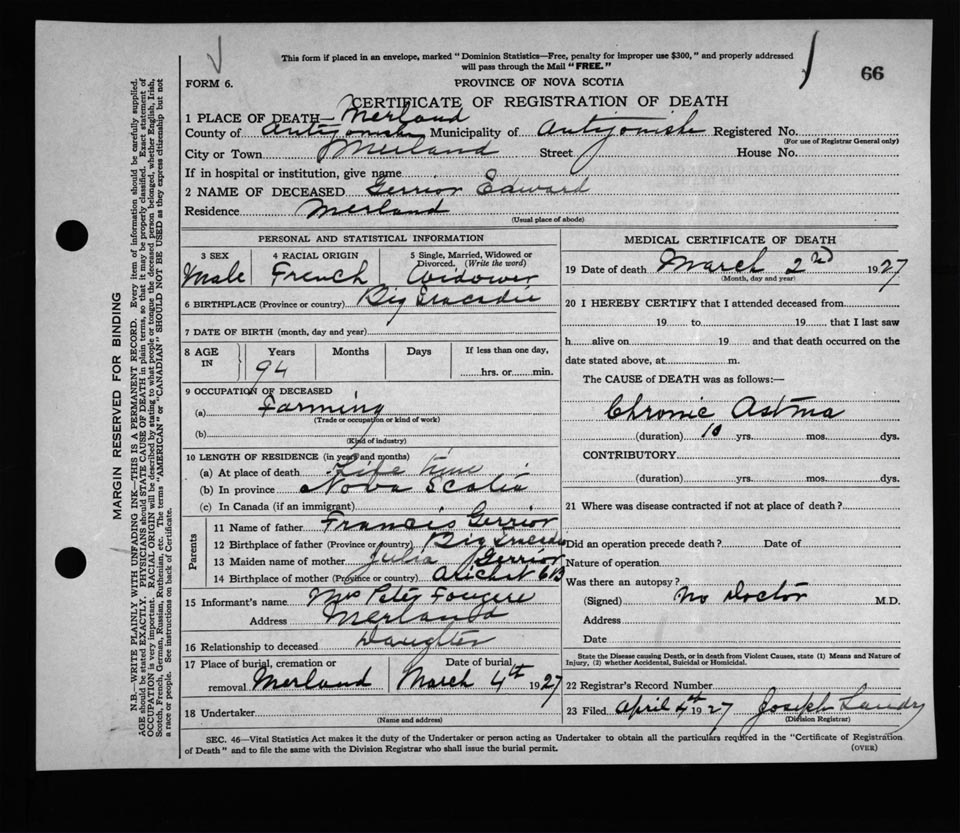 This form if placed in an envelope, marked "Dominion Statistics—Free, penalty for improper use $300," and properly addressed
will pass through the Mail "FREE."
66
FORM 6.
PROVINCE OF NOVA SCOTIA
CERTIFICATE OF REGISTRATION OF DEATH
1 PLACE OF DEATH— Merland
County of Antigonish Municipality of Antigonish Registered No.
(For use of Registrar General only)
City or Town Merland Street House No.
If in hospital or institution, give name
2 NAME OF DECEASED Gerrior Edward
Residence Merland
(Usual place of abode)
PERSONAL AND STATISTICAL INFORMATION
3 SEX 4 RACIAL ORIGIN 5 Single, Married, Widowed or
Divorced. (Write the word)
Male French Widower
6 BIRTHPLACE (Province or country) Big Tracadie
7 DATE OF BIRTH (month, day and year)
8 AGE IN Years Months Days If less than one day,
94 hrs. or min.
9 OCCUPATION OF DECEASED
(a) Farming
(Trade or occupation or kind of work)
(b)
(Kind of industry)
10 LENGTH OF RESIDENCE (in years and months)
(a) At place of death Life time
(b) In province Nova Scotia
(c) In Canada (if an immigrant)
Parents
11 Name of father Francis Gerrior
12 Birthplace of father (Province or country) Big Tracadie
13 Maiden name of mother Julia Gerrior
14 Birthplace of mother (Province or country) Arichat CB
15 Informant's name Mrs Peter Fougere
Address Merland
16 Relationship to deceased Daughter
17 Place of burial, cremation or Date of burial
removal Merland March 4th 1927
18 Undertaker
(Name and address)
MEDICAL CERTIFICATE OF DEATH
19 Date of death March 2nd 1927
(Month, day and year)
20 I HEREBY CERTIFY that I attended deceased from
19 to 19 that I last saw
h alive on 19 and that death occurred on the
date stated above, at m.
The CAUSE of DEATH was as follows:—
Chronic Astma
(duration) 10 yrs. mos. dys.
CONTRIBUTORY
(duration) yrs. mos. dys.
21 Where was disease contracted if not at place of death?
Did an operation precede death? Date of
Nature of operation
Was there an autopsy?
(Signed) No Doctor M.D.
Address
Date
State the Disease causing Death, or in death from Violent Causes, state (1) Means and Nature of
Injury, (2) whether Accidental, Suicidal or Homicidal.
22 Registrar's Record Number
23 Filed April 4th 1927 Joseph Landry
(Division Registrar)
SEC. 46—Vital Statistics Act makes it the duty of the Undertaker or person acting as Undertaker to obtain all the particulars required in the "Certificate of Registration
of Death" and to file the same with the Division Registrar who shall issue the burial permit.
(OVER)
MARGIN RESERVED FOR BINDING
N.B.—WRITE PLAINLY WITH UNFADING INK—THIS IS A PERMANENT RECORD. Every item of information should be carefully supplied.
AGE should be stated EXACTLY. PHYSICIANS should STATE CAUSE OF DEATH in plain terms, so that it may be properly classified. Exact statement of
OCCUPATION is very important. RACIAL ORIGIN will be described by stating to what people or tongue the deceased person belonged, whether English, Irish,
Scotch, French, German, Russian, Ruthenian, etc. The terms "AMERICAN" or "CANADIAN" SHOULD NOT BE USED as they express citizenship but not
a race or people. See instructions on back of Certificate.